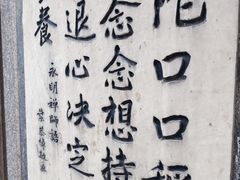 陀口口稱
念念想持
退心決定
養
永明禪師語